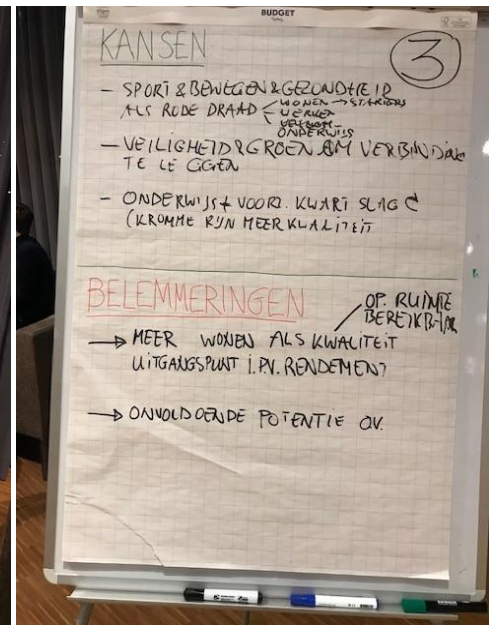 BUDGET
KANSEN
3
- SPORT & BEWEGEN & GEZONDHEID
ALS RODE DRAAD
WONEN → STARTERS
WERKEN
ONDERWIJS
- VEILIGHEID & GROEN OM VERBINDING
TE LEGGEN
- ONDERWIJS + VOORZ. KWART SLAG
(KROMME RIJN MEER KWALITEIT
BELEMMERINGEN
OP. RUIMTE
BEREIKB
→ MEER WONEN ALS KWALITEIT
UITGANGSPUNT I.P.V. RENDEMENT?
→ ONVOLDOENDE POTENTIE OV.